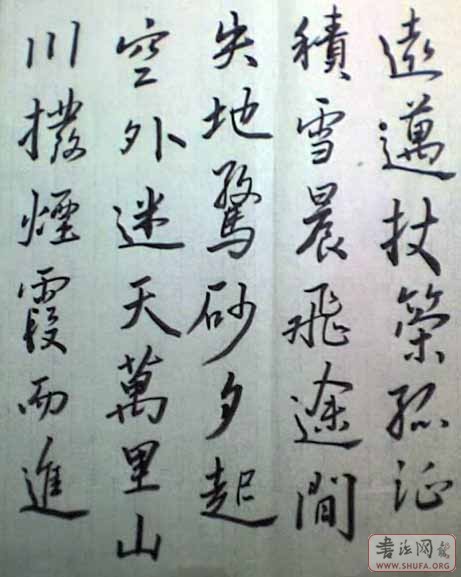 遠邁杖策孤征
積雪晨飛途間
失地驚砂夕起
空外迷天萬里山
川撥煙霞而進
書法网
WWW.SHUFA.ORG